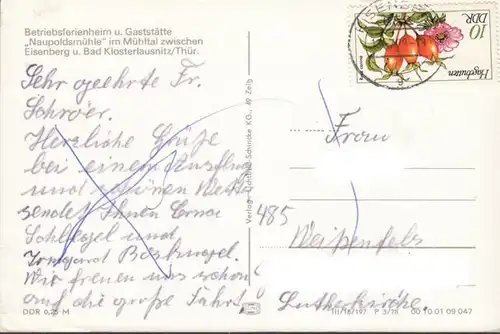 Betriebsferienheim u. Gaststätte
„Naupoldsmühle" im Mühltal zwischen
Eisenberg u. Bad Klosterlausnitz/Thür.
Sehr geehrte Fr.
Schröer.
Herzliche Grüße
bei einem Ausflug
und schönen Wetter
sendet Ihnen Erna
Schlegel und
Irmgard
Wir freuen uns schon
auf die große Fahrt!
DDR 0,25 M
Verlag
KG., 49 Zeitz
10
DDR
Hagebutten
Frau
485
Weißenfels
Lutherkirche.
III/18/197 P 3/78 00 10 01 09 047